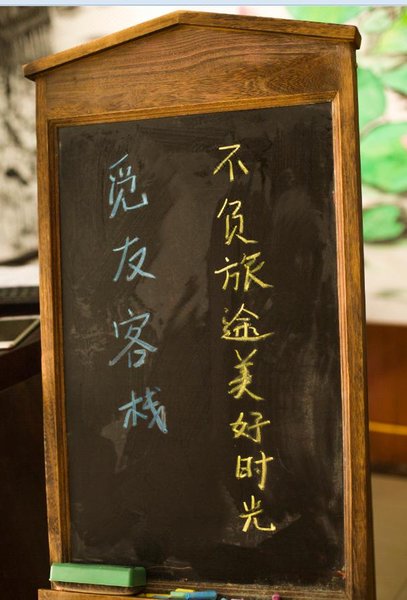 不负旅途美好时光
觅友客栈